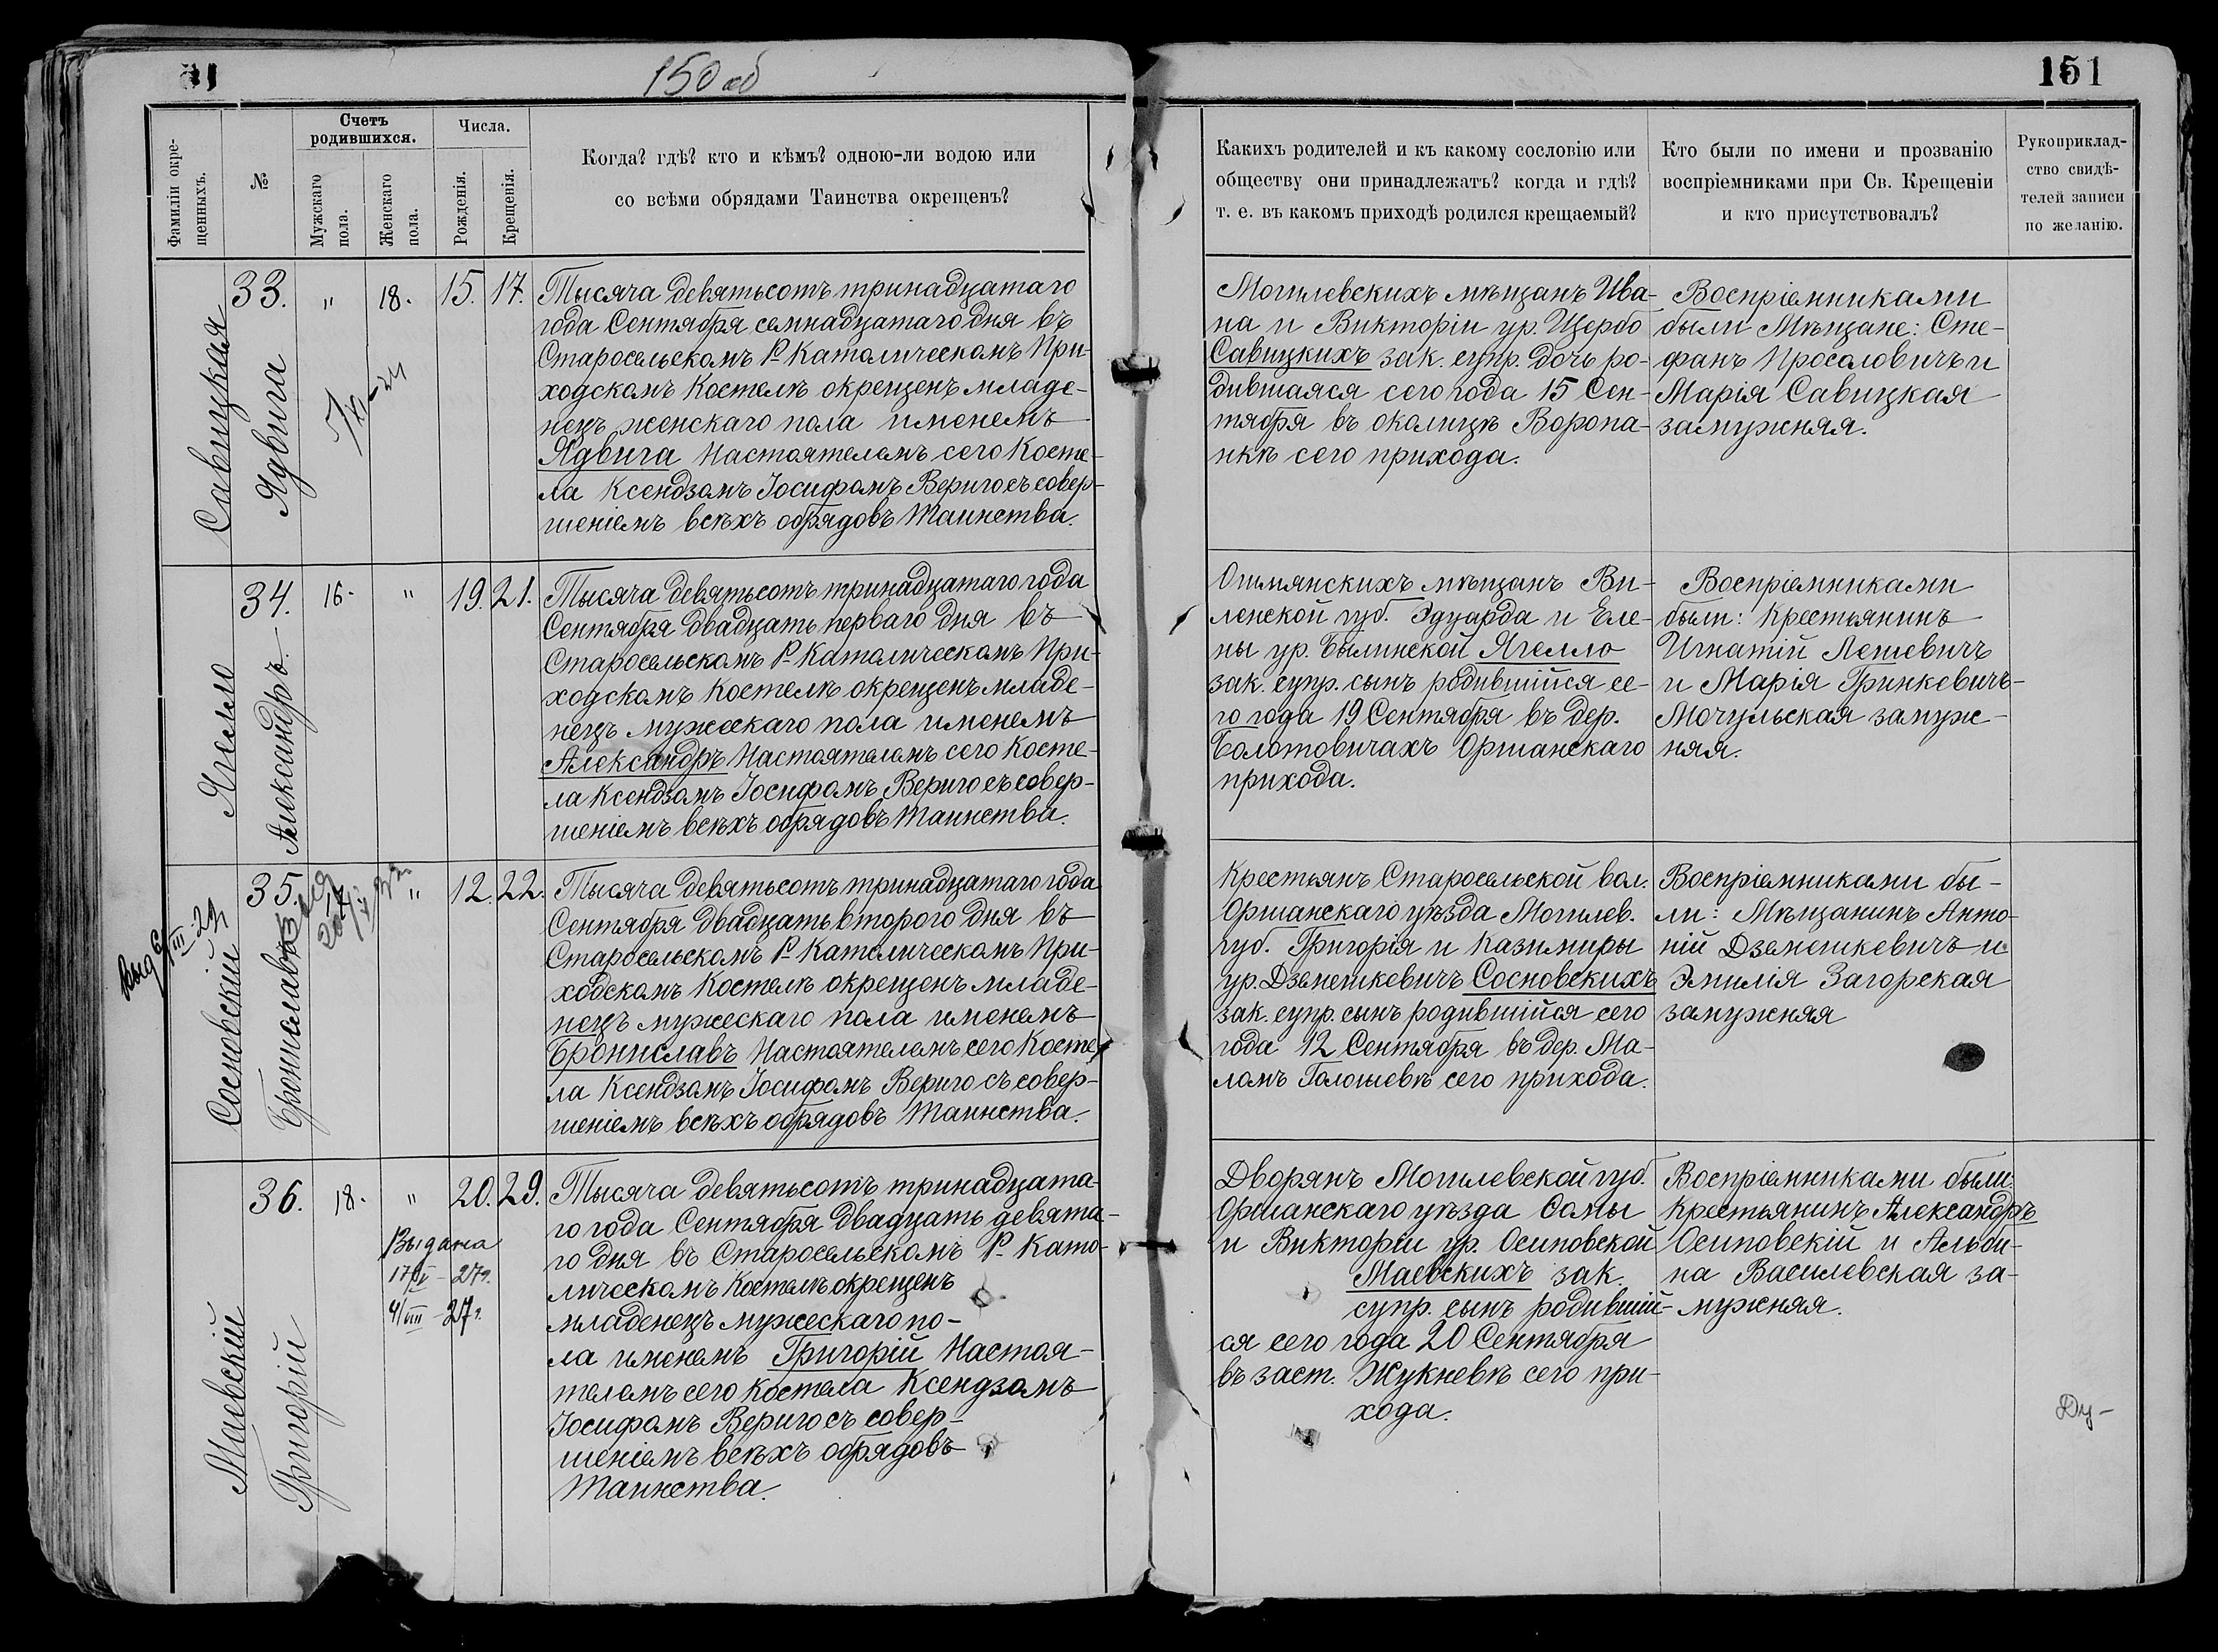 150 об
151
Фамиліи окре-
щенныхъ.
№
Счетъ
родившихся.
Мужскаго
пола.
Женскаго
пола.
Числа.
Рожденія.
Крещенія.
Когда? гдѣ? кто и кѣмъ? одною-ли водою или
со всѣми обрядами Таинства окрещенъ?
Какихъ родителей и къ какому сословію или
обществу они принадлежатъ? когда и гдѣ?
т. е. въ какомъ приходѣ родился крещаемый?
Кто были по имени и прозванію
воспріемниками при Св. Крещеніи
и кто присутствовалъ?
Рукоприклад-
ство свидѣ-
телей записи
по желанію.
Савицкая
Ядвига
33. " 18. 15. 17.
Тысяча девятьсотъ тринадцатаго
года Сентября семнадцатаго дня въ
Старосельскомъ Р-Католическомъ При-
ходскомъ Костелѣ окрещенъ младе-
нецъ женскаго пола именемъ
Ядвига Настоятелемъ сего Косте-
ла Ксендзомъ Іосифомъ Вериго съ совер-
шеніемъ всѣхъ обрядовъ Таинства.
Могилевскихъ мѣщанъ Ива-
на и Викторіи ур. Щербо
Савицкихъ зак. супр. дочь ро-
дившаяся сего года 15 Сен-
тября въ околицѣ Воропа-
нкѣ сего прихода.
Воспріемниками
были Мѣщане: Сте-
фанъ Просоловичъ и
Марія Савицкая
замужняя.
Ягелло
Александръ
34. 16. " 19. 21.
Тысяча девятьсотъ тринадцатаго года
Сентября двадцать перваго дня въ
Старосельскомъ Р-Католическомъ При-
ходскомъ Костелѣ окрещенъ младе-
нецъ мужескаго пола именемъ
Александръ Настоятелемъ сего Косте-
ла Ксендзомъ Іосифомъ Вериго съ совер-
шеніемъ всѣхъ обрядовъ Таинства.
Ошмянскихъ мѣщанъ Ви-
ленской губ. Эдуарда и Еле-
ны ур. Былинской Ягелло
зак. супр. сынъ родившійся се-
го года 19 Сентября въ дер.
Болотовичахъ Оршанскаго
прихода.
Воспріемниками
были: Крестьянинъ
Игнатій Лешевичъ
и Марія Гринкевичъ-
Мочульская замуж-
няя.
Сосновскій
Брониславъ
35. 17 " 12. 22.
Тысяча девятьсотъ тринадцатаго года
Сентября двадцать второго дня въ
Старосельскомъ Р-Католическомъ При-
ходскомъ Костелѣ окрещенъ младе-
нецъ мужескаго пола именемъ
Брониславъ Настоятелемъ сего Косте-
ла Ксендзомъ Іосифомъ Вериго съ совер-
шеніемъ всѣхъ обрядовъ Таинства.
Крестьянъ Старосельской вол.
Оршанскаго уѣзда Могилев.
губ. Григорія и Казимиры
ур. Дземешкевичъ Сосновскихъ
зак. супр. сынъ родившійся сего
года 12 Сентября въ дер. Ма-
ломъ Голошевѣ сего прихода.
Воспріемниками бы-
ли: Мѣщанинъ Анто-
ній Дземешкевичъ и
Эмилія Загорская
замужняя
Маевскій
Григорій
36. 18. " 20. 29.
Выдана
17/IX - 27г.
4/VIII - 27г.
Тысяча девятьсотъ тринадцата-
го года Сентября двадцать девята-
го дня въ Старосельскомъ Р-Като-
лическомъ Костелѣ окрещенъ
младенецъ мужескаго по-
ла именемъ Григорій Настоя-
телемъ сего Костела Ксендзомъ
Іосифомъ Вериго съ совер-
шеніемъ всѣхъ обрядовъ
Таинства.
Дворянъ Могилевской губ.
Оршанскаго уѣзда Ѳомы
и Викторіи ур. Осиповской
Маевскихъ зак.
супр. сынъ родившій-
ся сего года 20 Сентября
въ заст. Жукневѣ сего при-
хода.
Воспріемниками были:
Крестьянинъ Александръ
Осиповскій и Альби-
на Василевская за-
мужняя.